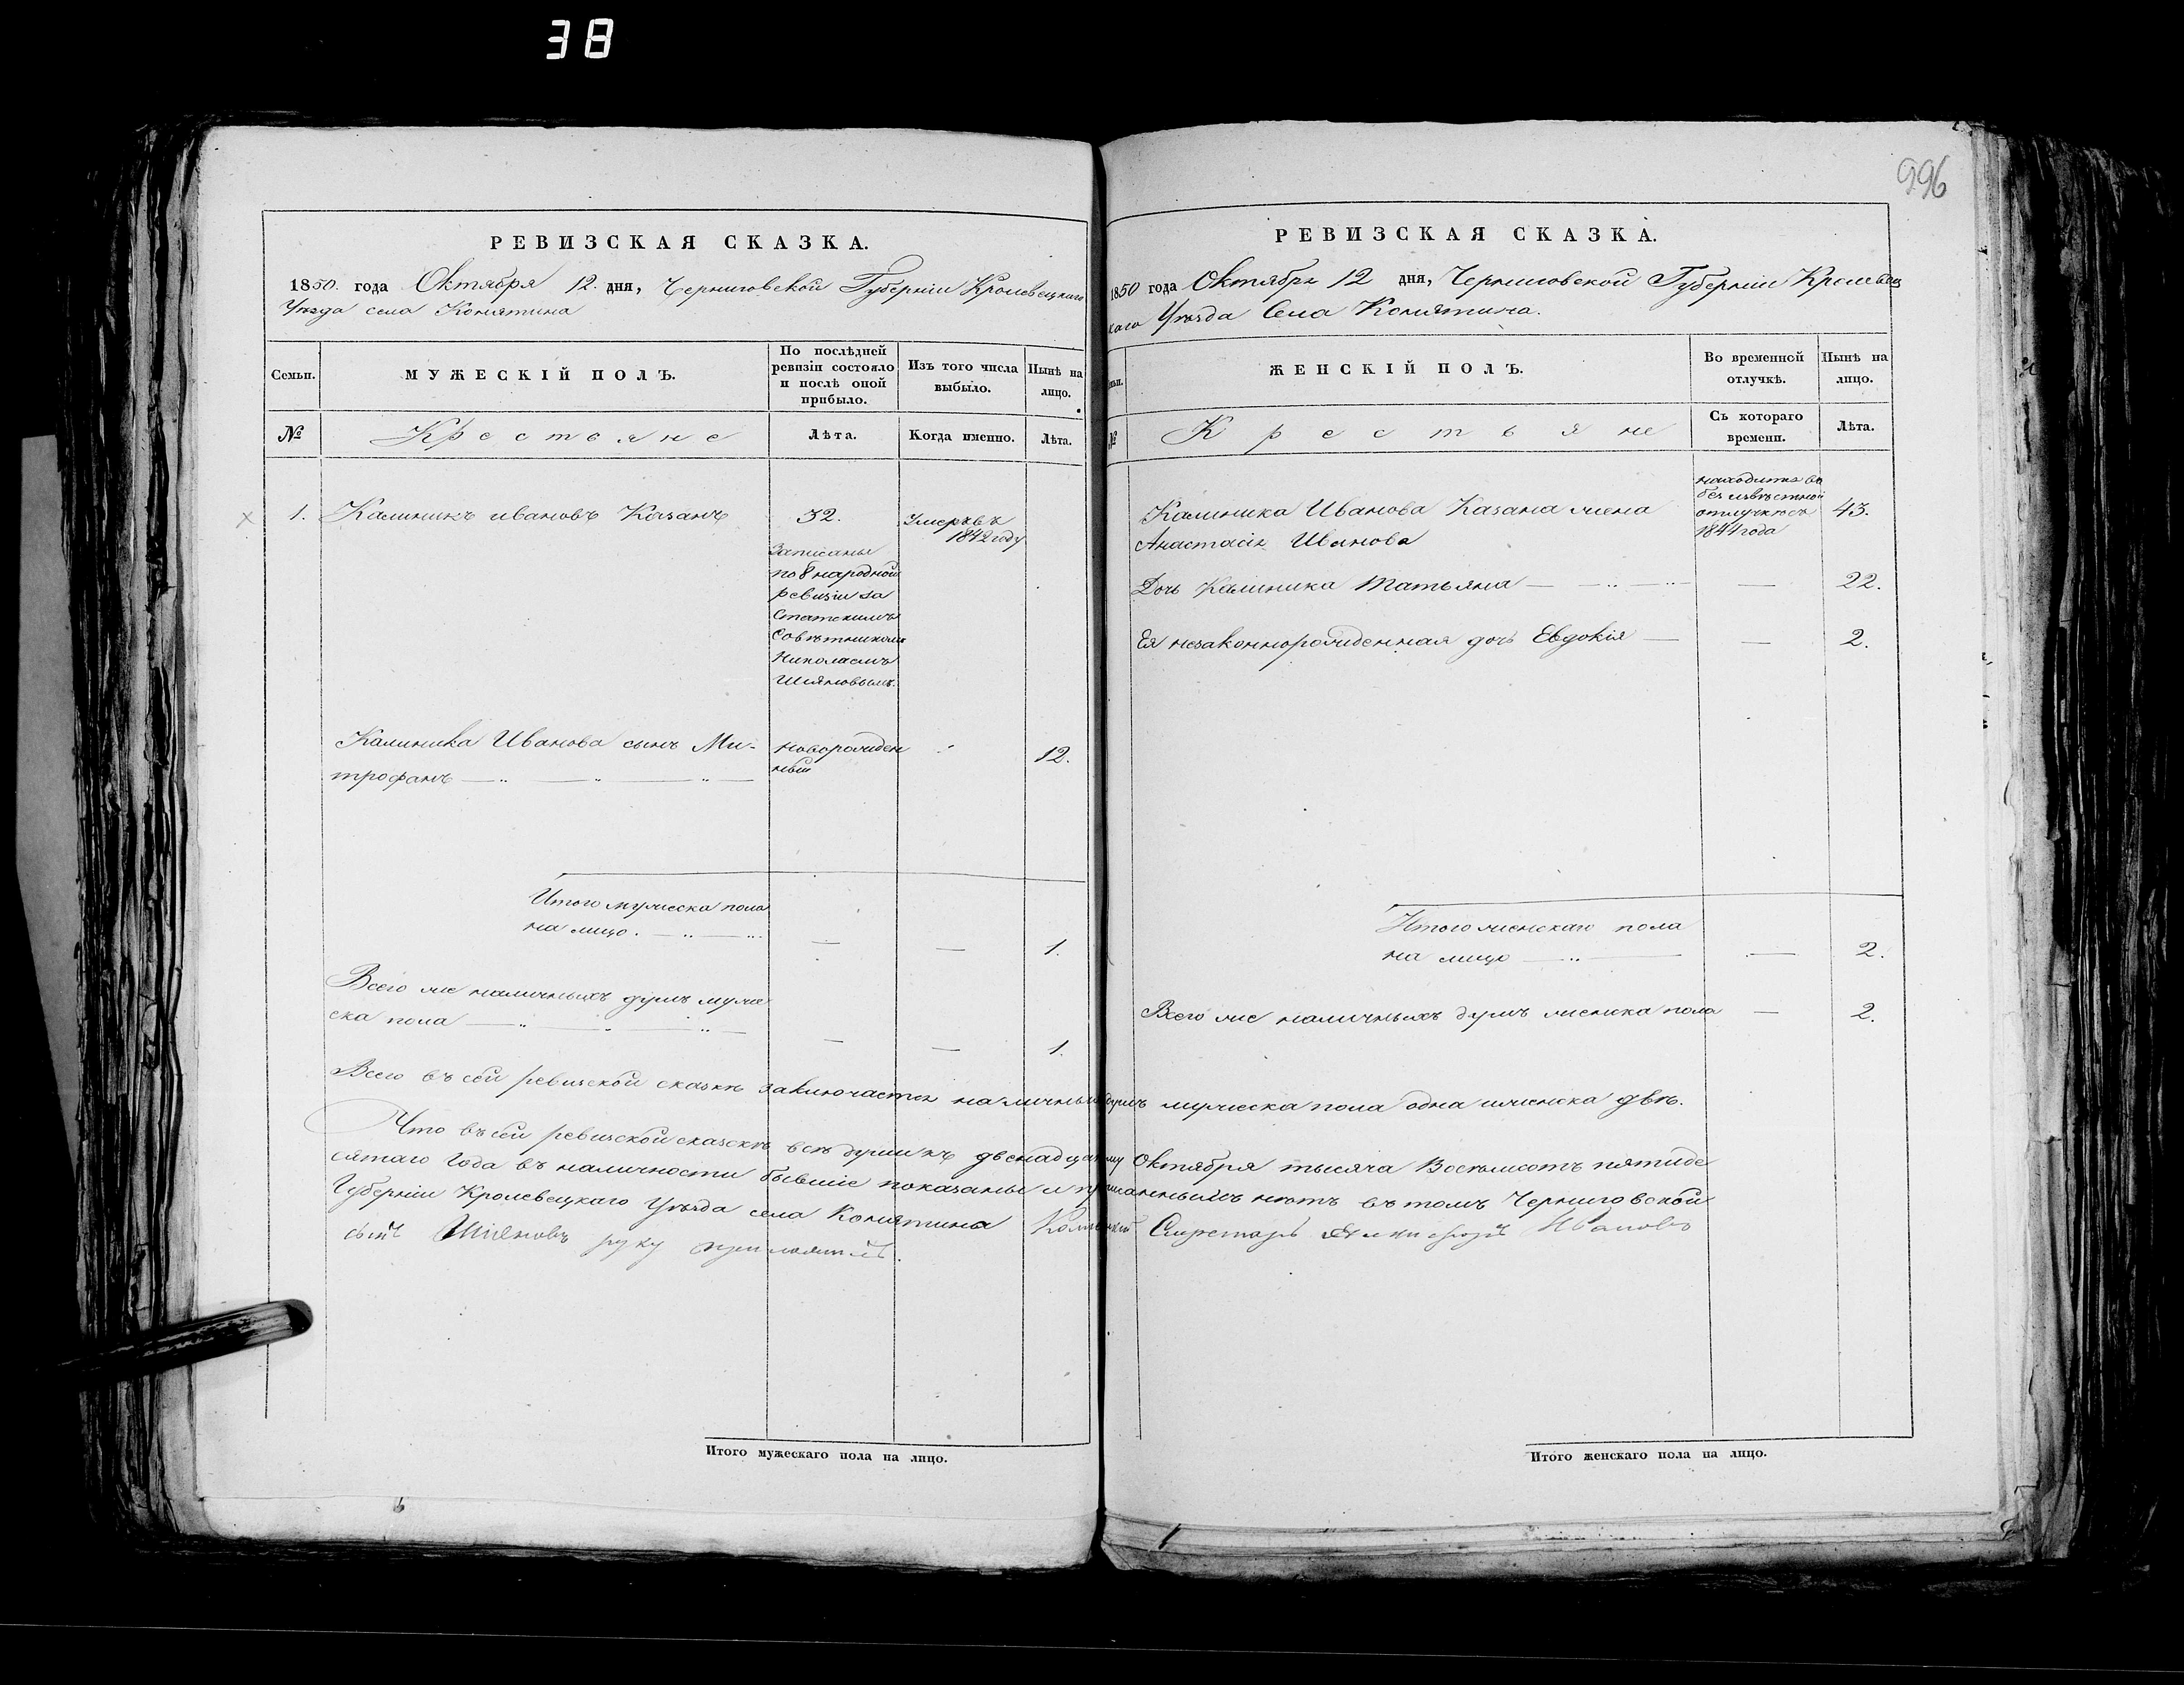 38
996
РЕВИЗСКАЯ СКАЗКА.
1850. года Октября 12. дня, Черниговской Губерніи Кролевецкаго
Уезда села Конятина
Семьи.
МУЖЕСКІЙ ПОЛЪ.
По послѣдней
ревизіи состояло
и послѣ оной
прибыло.
Изъ того числа
выбыло.
Нынѣ на
лицо.
№
Крестьяне
Лѣта.
Когда именно.
Лѣта.
1. Калиникъ ивановъ Казанъ
32.
Умеръ въ
1842 году
Записаны
по 8 народной
ревизіи за
Статскимъ
Совѣтникомъ
Николаемъ
Шіяновымъ.
Калиника Иванова сынъ Ми-
трофанъ
новорожден
ный
12.
Итого мужеска пола
на лицо.
1.
Всего же наличныхъ душъ муже
ска пола
1.
РЕВИЗСКАЯ СКАЗКА.
1850 года Октября 12 дня, Черниговской Губерніи Кролевец
каго Уѣзда Села Конятина.
ЖЕНСКІЙ ПОЛЪ.
Во временной
отлучкѣ.
Нынѣ на
лицо.
№
Крестьяне
Съ котораго
времени.
Лѣта.
Калиника Иванова Казана жена
Анастасія Иванова
находится въ
безъизвѣстной
отлучке съ
1844 года
43.
Дочь Калиника Татьяна
22.
Ея незаконнорожденная дочь Евдокія
2.
Итого женскаго пола
на лицо
2.
Всего же наличныхъ душъ женска пола
2.
Всего въ сей ревизской сказкѣ заключается наличныхъ душъ мужеска пола одна иженска двѣ.
Что въ сей ревизской сказскѣ всѣ души къ двенадцатому Октября тысяча Восемьсотъ пятиде
сятаго Года въ наличности бывшіе показаны и прописанныхъ нѣтъ въ томъ Черниговской
Губерніи Кролевецкаго Уѣзда села Конятина Секретарь Ивановъ
сынъ Шіяновъ руку приложилъ.
Итого мужескаго пола на лицо.
Итого женскаго пола на лицо.